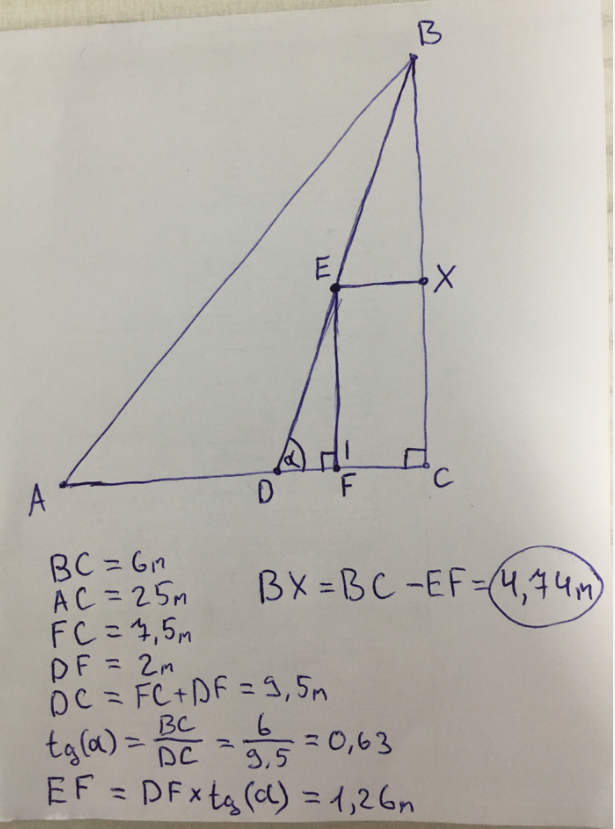 B
E
X
α
A
D
F
C
BC = 6m
AC = 25m
FC = 7,5m
DF = 2m
DC = FC+DF = 9,5m
tg(α) = BC/DC = 6/9,5 = 0,63
EF = DF×tg(α) = 1,26m
BX = BC - EF = 4,74m